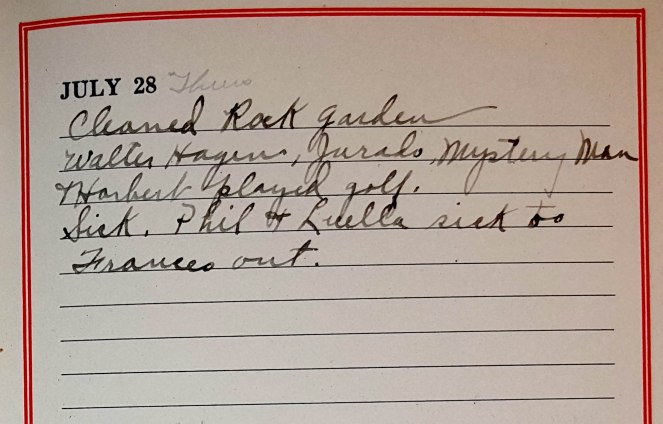 JULY 28 Thurs
Cleaned Rock garden
Walter Hagen, Jurado, Mystery Man
& Harbert played golf.
Sick. Phil & Luella sick too
Frances out.